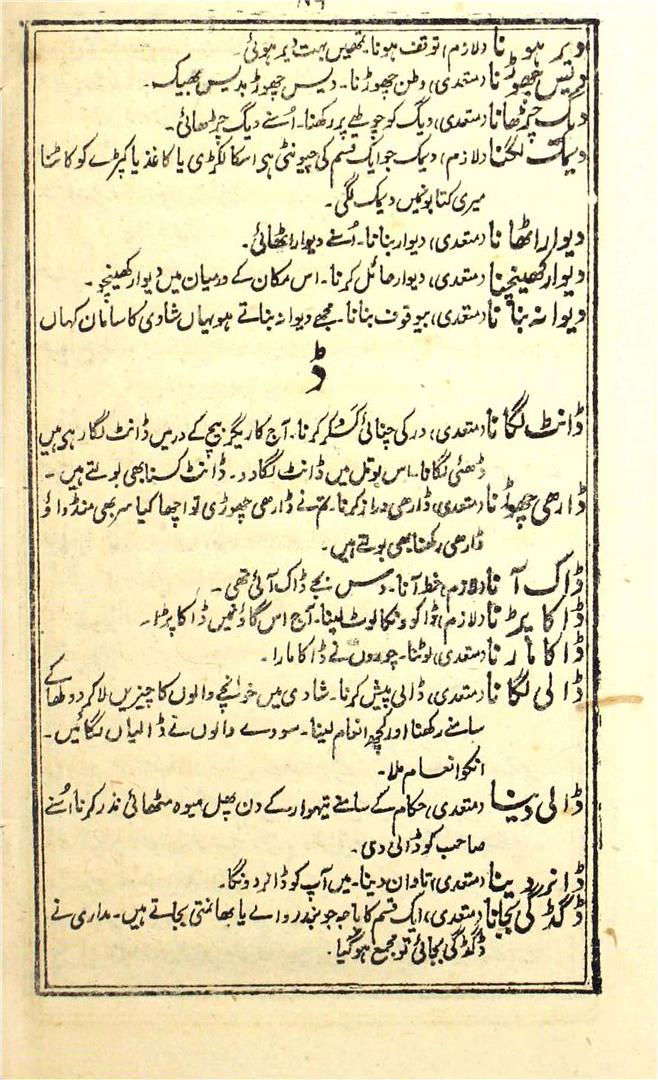 دیر ہونا (لازم) توقف ہونا۔ تمھیں بہت دیر ہوئی۔
دیس چھوڑنا (متعدی) وطن چھوڑنا۔ دیس چھوڑ پردیس بھیک۔
دیگ چڑھانا (متعدی) دیگ کو چولھے پر رکھنا۔ اُسنے دیگ چڑھائی۔
دیمک لگنا (لازم) دیمک جو ایک قسم کی چیونٹی ہی اسکا لکڑی یا کاغذ یا کپڑے کو کاٹنا
میری کتابونمیں دیمک لگی۔
دیوار اٹھانا (متعدی) دیوار بنانا۔ اُسنے دیوار اٹھائی۔
دیوار کھینچنا (متعدی) دیوار حائل کرنا۔ اس مکان کے درمیان میں دیوار کھینچو۔
دیوانہ بنانا (متعدی) بیوقوف بنانا۔ مجھے دیوانہ بناتے ہو یہاں شادی کا سامان کہاں
ڈ
ڈانٹ لگانا (متعدی) در کی چنائی کرنا۔ آج کاریگر بیچ کے در میں ڈانٹ لگا رہی ہیں
ڈھئی لگانا۔ اس بوتل میں ڈانٹ لگادو۔ ڈانٹ کسنا بھی بولتے ہیں۔
ڈارھی چھوڑنا (متعدی) ڈارھی دراز کرنا۔ تمنے ڈارھی چھوڑی تو اچھا کیا سر بھی منڈواؤ
ڈارھی رکھنا بھی بولتے ہیں۔
ڈاک آنا (لازم) خط آنا۔ دس بجے ڈاک آئی تھی۔
ڈاکا پڑنا (لازم) ڈاکوونکا لوٹ لینا۔ آج اس گاؤنمیں ڈاکا پڑا۔
ڈاکا مارنا (متعدی) لوٹنا۔ چوروں نے ڈاکا مارا۔
ڈالی لگانا (متعدی) ڈالی پیش کرنا۔ شادی میں خوانچے والوں کا چیزیں لاکر دولھا کے
سامنے رکھنا اور کچھ انعام لینا۔ سودے والوں نے ڈالیاں لگائیں۔
انکو انعام ملا۔
ڈالی دینا (متعدی) حکام کے سامنے تیہوار کے دن پھل میوہ مٹھائی نذر کرنا اُسنے
صاحب کو ڈالی دی۔
ڈانر دینا (متعدی) تاوان دینا۔ میں آپ کو ڈانر دونگا۔
ڈگڈگی بجانا (متعدی) ایک قسم کا باجہ جو بندر والے یا بھانمتی بجاتے ہیں۔ مداری نے
ڈگڈگی بجائی تو مجمع ہوگیا۔